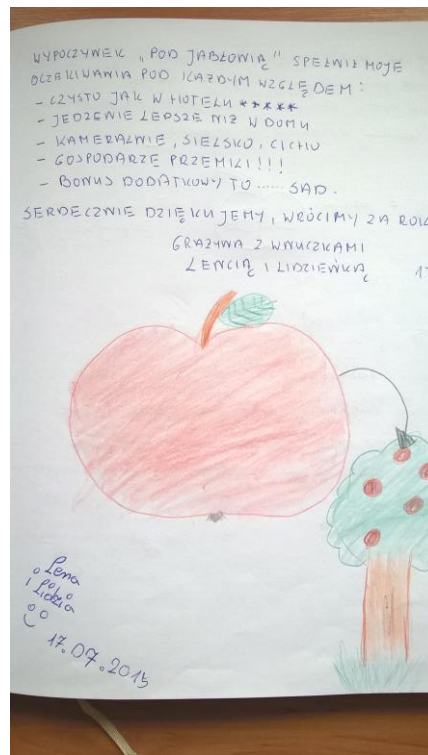 WYPOCZYNEK „POD JABŁONIĄ" SPEŁNIŁ MOJE
OCZEKIWANIA POD KAŻDYM WZGLĘDEM:
- CZYSTO JAK W HOTELU *****
- JEDZENIE LEPSZE NIŻ W DOMU
- KAMERALNIE, SIELSKO, CICHO
- GOSPODARZE PRZEMILI!!!
- BONUS DODATKOWY TO ..... SAD.
SERDECZNIE DZIĘKUJEMY, WRÓCIMY ZA ROK
GRAŻYNA Z WNUCZKAMI
LENCIĄ I LIDZIEŃKĄ
17
Lena
i Lidzia
17.07.2015